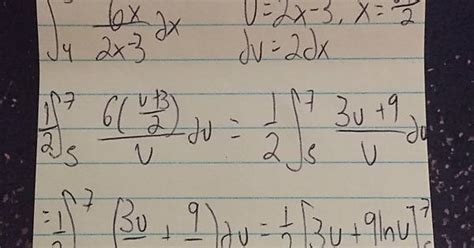 ∫₄ 6x/(2x-3) dx    u=2x-3, x=
du=2dx
1/2 ∫₅⁷ 6((u+3)/2)/u du = 1/2 ∫₅⁷ (3u+9)/u du
=1/2 ∫⁷ (3u + 9 )du = 1/2 [3u+9lnu]⁷